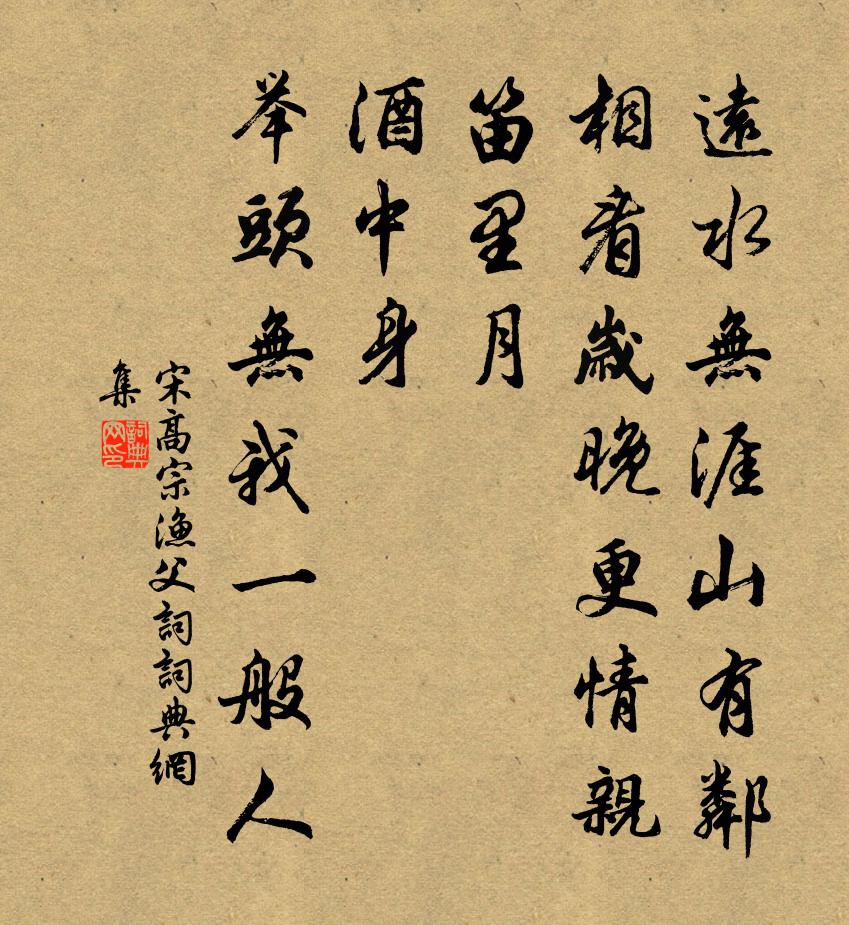 遠水無涯山有鄰
相看歲晚更情親
笛里月
酒中身
举頭無我一般人
宋高宗漁父詞詞典網
集
詞典
网印